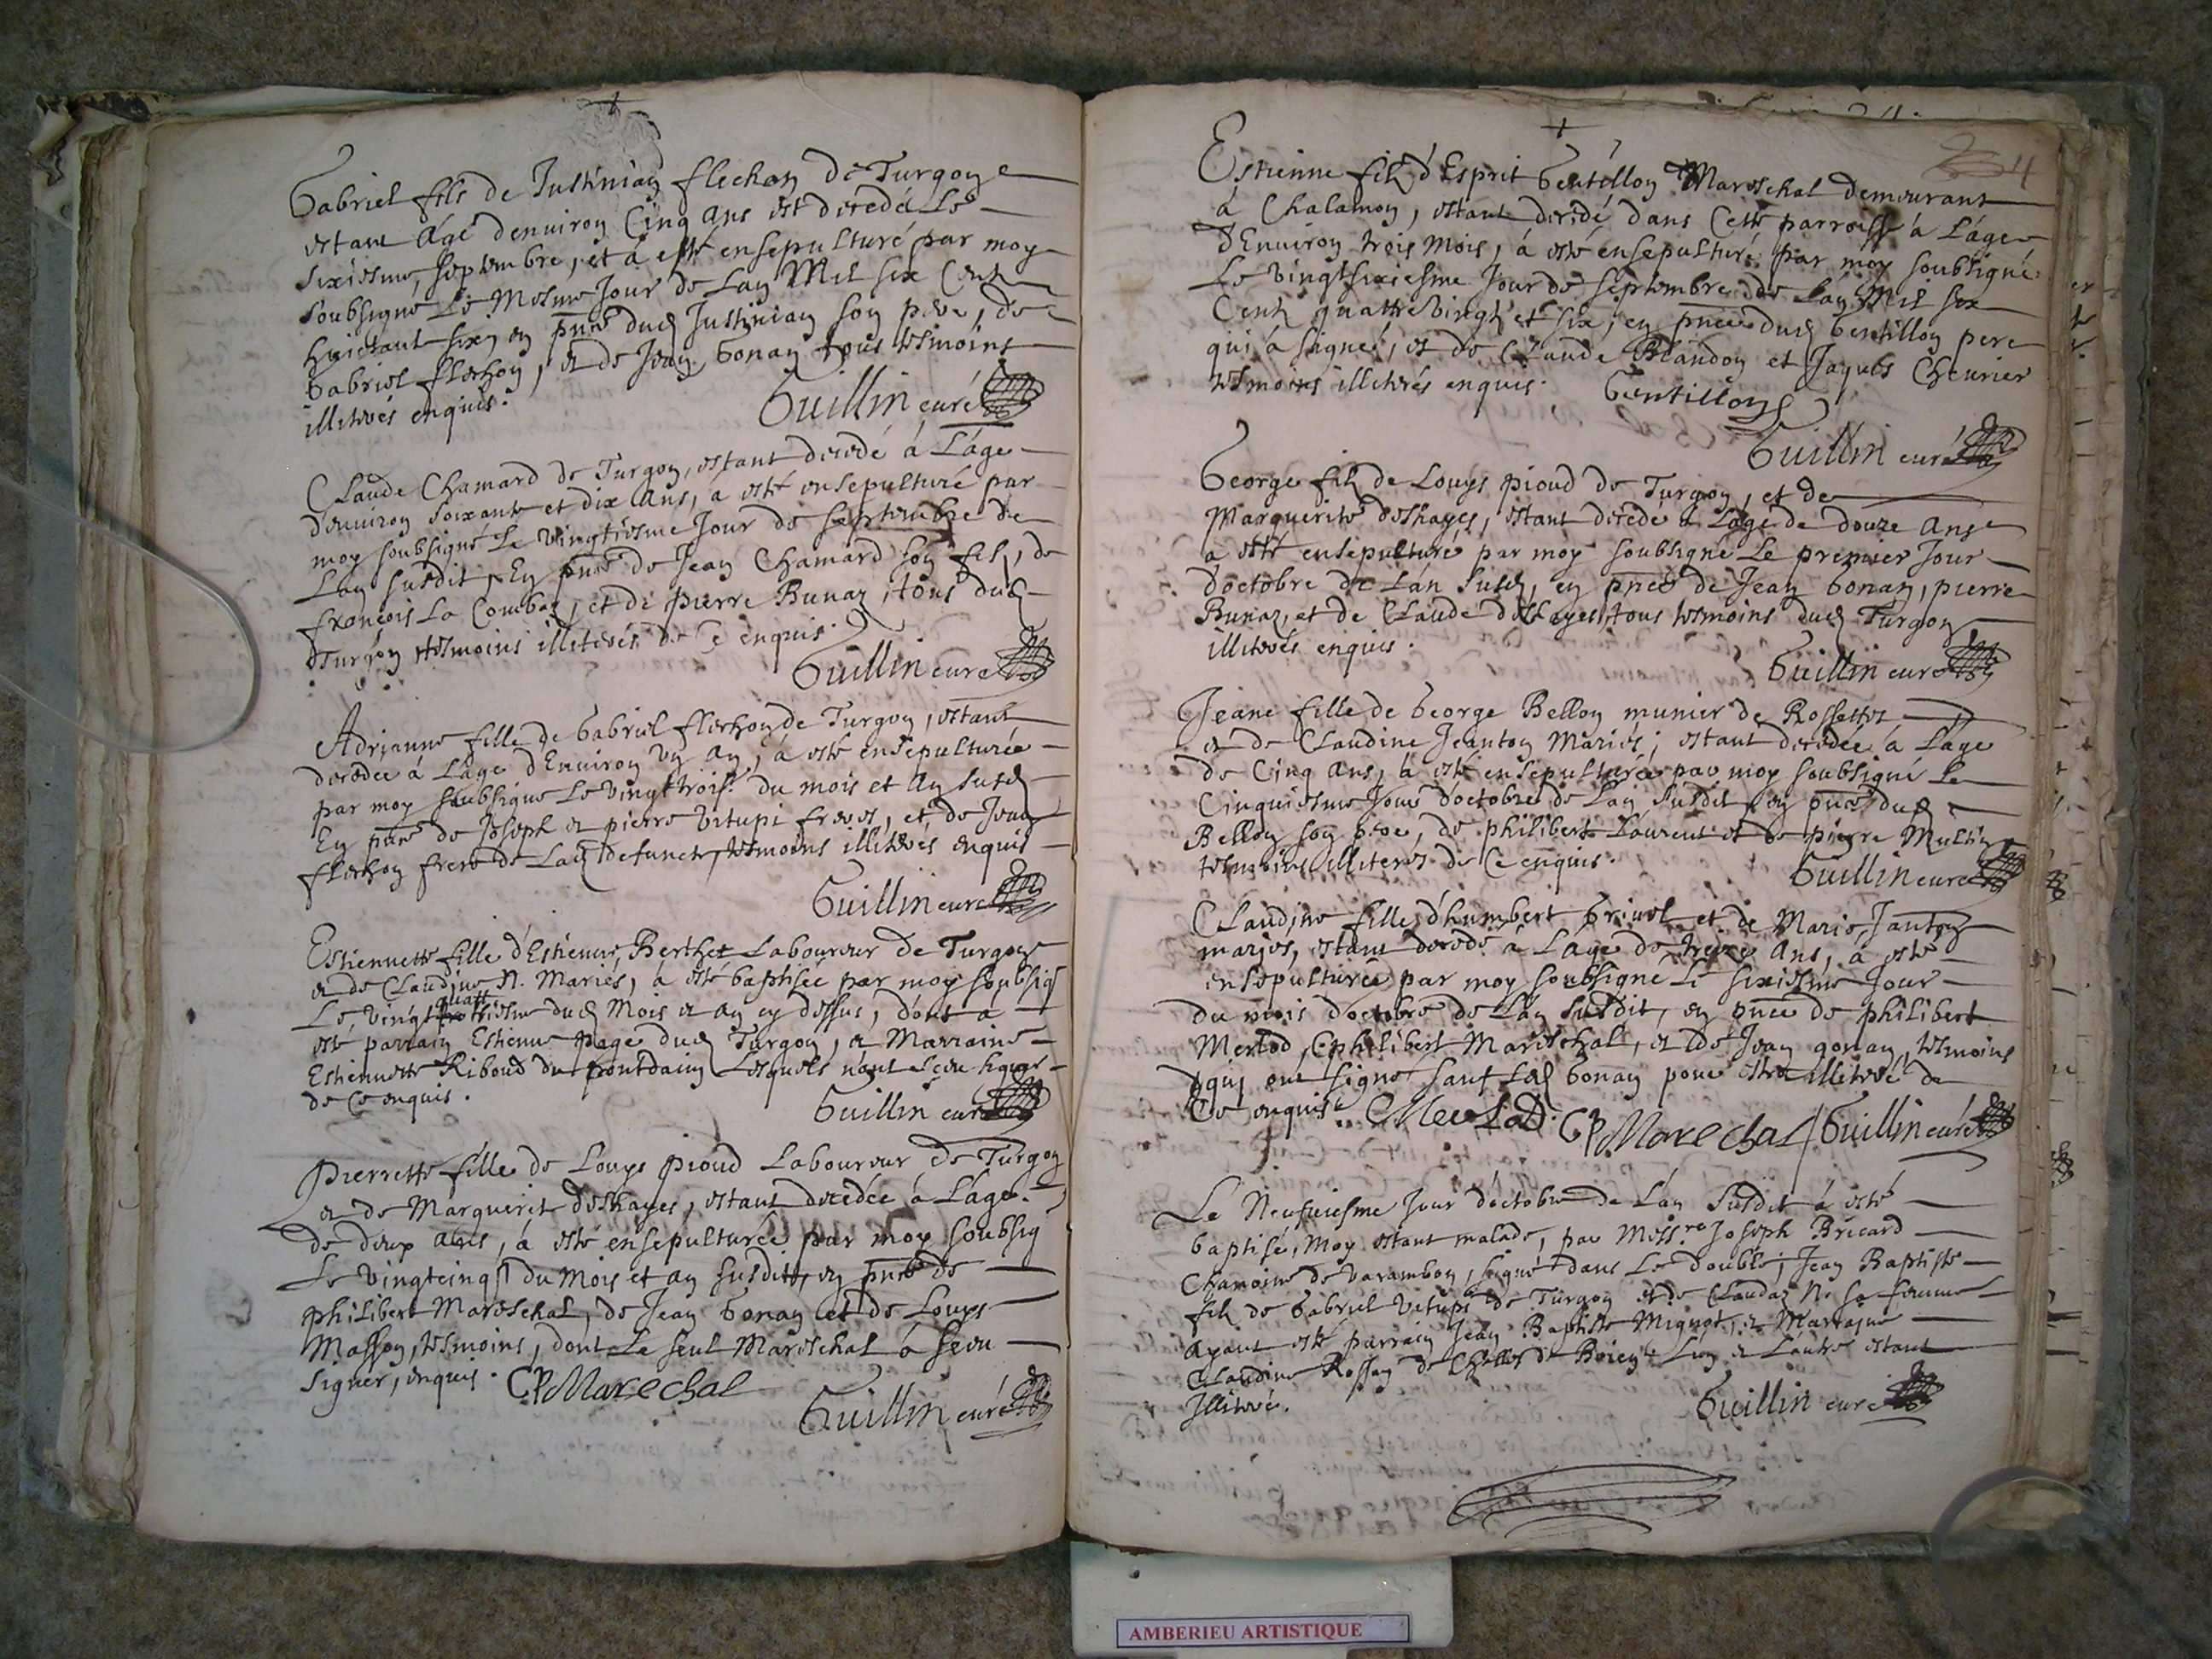 Gabriel fils de Justinian flechon de Turgon
estant âgé denuiron Cinq ans est decedé Le
sixiesme septembre, et à esté ensepulturé par moy
soubsigné Le Mesme Jour de Lan Mil six Cents
huictant six, en pnce dud Justinian son pere, de
Gabriel flechon, et de Jean Gonan tous tesmoins
illiterés enquis.
Guillin curé
Claude Chamard de Turgon, estant decedé à L'âge
d'enuiron soixante et dix ans, à esté ensepulturé par
moy soubsigné Le vingtiesme Jour de septembre de
Lan susdit, En pnce de Jean Chamard son fils, de
françois La Combaz, et de pierre Bunaz, tous dud
Turgon tesmoins illiterés de ce enquis.
Guillin curé
Adrianne fille de Gabriel flechon de Turgon, estant
decedée à L'age d'Enuiron vn an, à esté ensepulturée
par moy soubsigné Le vingt trois.e du mois et an susd
En pnce de Joseph et pierre vitupi freres, et de Jean
flechon frere de Lad defuncte, tesmoins illiterés enquis
Guillin curé
Estiennette fille d'Estienne Berthet Laboureur de Turgon
et de Claudine N. Mariés, à esté baptisée par moy soubsig
Le vingt quattriesme dud Mois et an cy dessus, dont à
esté parrain Estienne page dud Turgon, et Marraine
Estiennette Riboud du pontdain Lesquels n'ont sceu signer
de Ce enquis.
Guillin curé
Pierrette fille de Louys pioud Laboureur de Turgon
et de Marguerit deshayes, estant decedée à L'âge
de deux ans, à esté ensepulturée par moy soubsig
Le vingtcinq du Mois et an susdits, en pnce de
philibert Mareschal, de Jean Gonan et de Louys
Masson, tesmoins, dont Le seul Mareschal à sceu
signer, enquis. CPMarechal
Guillin curé
Estienne fils d'Esprit Gentillon Mareschal demeurant
à Chalamon, estant decedé dans Cette parroisse à L'âge
d'Enuiron trois Mois, à esté ensepulturé par moy soubsigné
Le vingtsixiesme Jour de septembre de Lan Mil six
Cents quattre vingts et six, en pnce dud Gentillon pere
qui à signé, et de Claude Blandon et Jaques Cheurier
tesmoins illiterés enquis. Gentillon
Guillin curé
George fils de Louys pioud de Turgon, et de
Marguerite deshayes, estant decedé à L'age de douze ans
à esté ensepulturé par moy soubsigné Le premier Jour
d'octobre de Lán susd, en pnce de Jean Gonan, pierre
Bunaz, et de Claude deshayes, tous tesmoins dud Turgon
illiterés enquis.
Guillin curé
Jeane fille de George Bellon munier de Rossettes
et de Claudine Jeanton Mariés, estant decedée à L'âge
de Cinq ans, à esté ensepulturée par moy soubsigné Le
Cinquiesme Jour d'octobre de Lan susdit en pnce dud
Bellon son pere, de philibert Laurent et de pierre Multin
tesmoins illiterés de Ce enquis.
Guillin curé
Claudine fille d'humbert Griuel et de Marie Janton
mariés, estant decedé à L'age de treze ans, à esté
ensepulturée par moy soubsigné Le sixiesme Jour
du mois d'octobre de Lán susdit, en pnce de philibert
Merlod, Cphilibert Mareschal, et de Jean gonan, tesmoins
qui ont signé sauf Led Gonan pour estre illiteré de
Ce enquis. Merlod. CPMarechal Guillin curé
Le Neufuiesme Jour d'octobre de Lán susdit à esté
baptisé, Moy estant malade, par Mess.re Joseph Bricard
Chanoine de varambon, signé dans Le double, Jean Baptiste
fils de Gabriel vitupi de Turgon et de Claudaz N. sa femme
Ayant esté parrain Jean Baptiste Mignot, et Marraine
Claudine Rossan de L'un et L'autre estant
Illiteré.
Guillin curé
AMBERIEU ARTISTIQUE